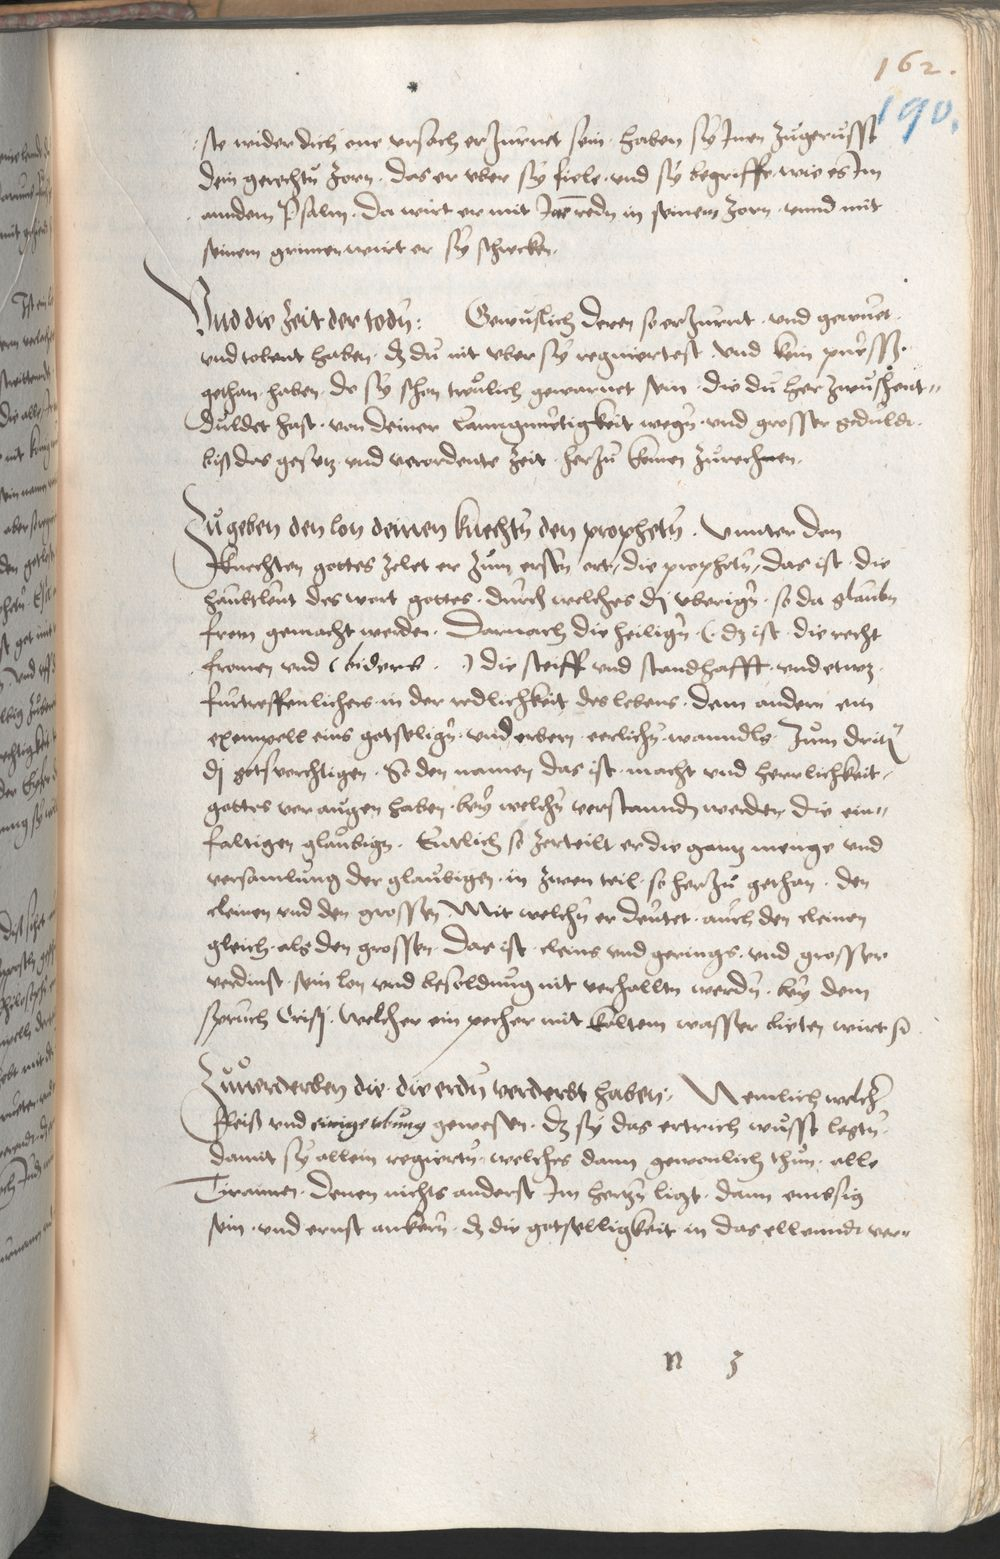 162.
190.
ste wider dich one ursach erzurnet sein. haben sÿ Inen zugerusst
dein gerechtn zorn. das er uber sÿ fiele. und sÿ begriffe. wie es Im
anndern Psalm. Da wirt er mit Ine redn in seinem zorn. unnd mit
seinem grimen wirt er sÿ schrecken.
Und die zeit der todn: Gewüslich deren so erzürnt. und gewuet.
und tobent haben. dz du nit uber sÿ regniertest. und kein
gethan haben. do sÿ schon trulich gewarnet sein. die du herzwüschent
duldet hast. von deiner lanngmüetigkeit wegn. und grosser gedüld.
biß das gesetz. und verordente zeit. herzu komen zurechnen.
Zu geben den lon deinen knechtn den prophetn. Unnter den
knechten gottes zelet er zum ersten ort, die prophetn, das ist. die
haubtleut des wort gottes. durch welches dj uberign. so da glaubn
from gemacht werden. Darnach die heilign (. dz ist. die recht
fromen und (biders. .) die steiff und standhafft. und etwz.
furtreffenlichers. in der redlichkeit des lebens. dem andern ein
exempell eins gotselign. und erbern. eerlichn. wanndls. Zum drittn
dj gotsvorchtigen. So den namen das ist. macht und herrlichkeit.
gottes vor augen haben. beÿ welchn verstannden werden die ein„
faltigen glaubign. Entlich so zerteilt er die gantz menge und
versamlung der glaubigen. in zwen teil. so herzu gethan. den
cleinen und den grossen. Mit welchn er deutet. auch den cleinen
gleich. als den grossen. Das ist. cleins und gerings. und grosser
verdinst. sein lon und besoldung nit verhallten werdn. beÿ dem
spruch Cristj. Welcher ein pecher mit kaltem wasser bieten wirt so
Zuverderben die. die erdn verderbt haben: Nemlich welcher
fleiß und einige ubung gewesen. dz sÿ das ertrich wusst legtn.
damit sÿ allein regiertn. welches dann gewonlich thun. alle
Tirannen. denen nichts anderst Im hertzn ligt. dann emssig
sein. und ernst ankern. dz die gotselligkeit in das ellennde ver„
n 3